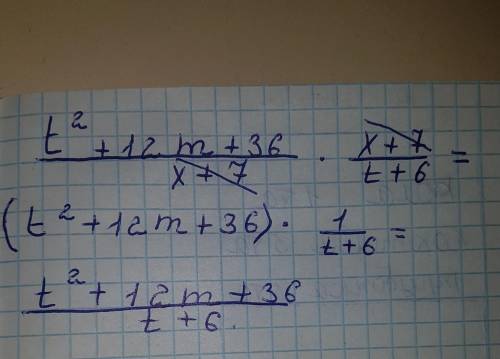 (t² + 12m + 36)/(x + 7) · (x + 7)/(t + 6) =
(t² + 12m + 36) · 1/(t + 6) =
(t² + 12m + 36)/(t + 6).